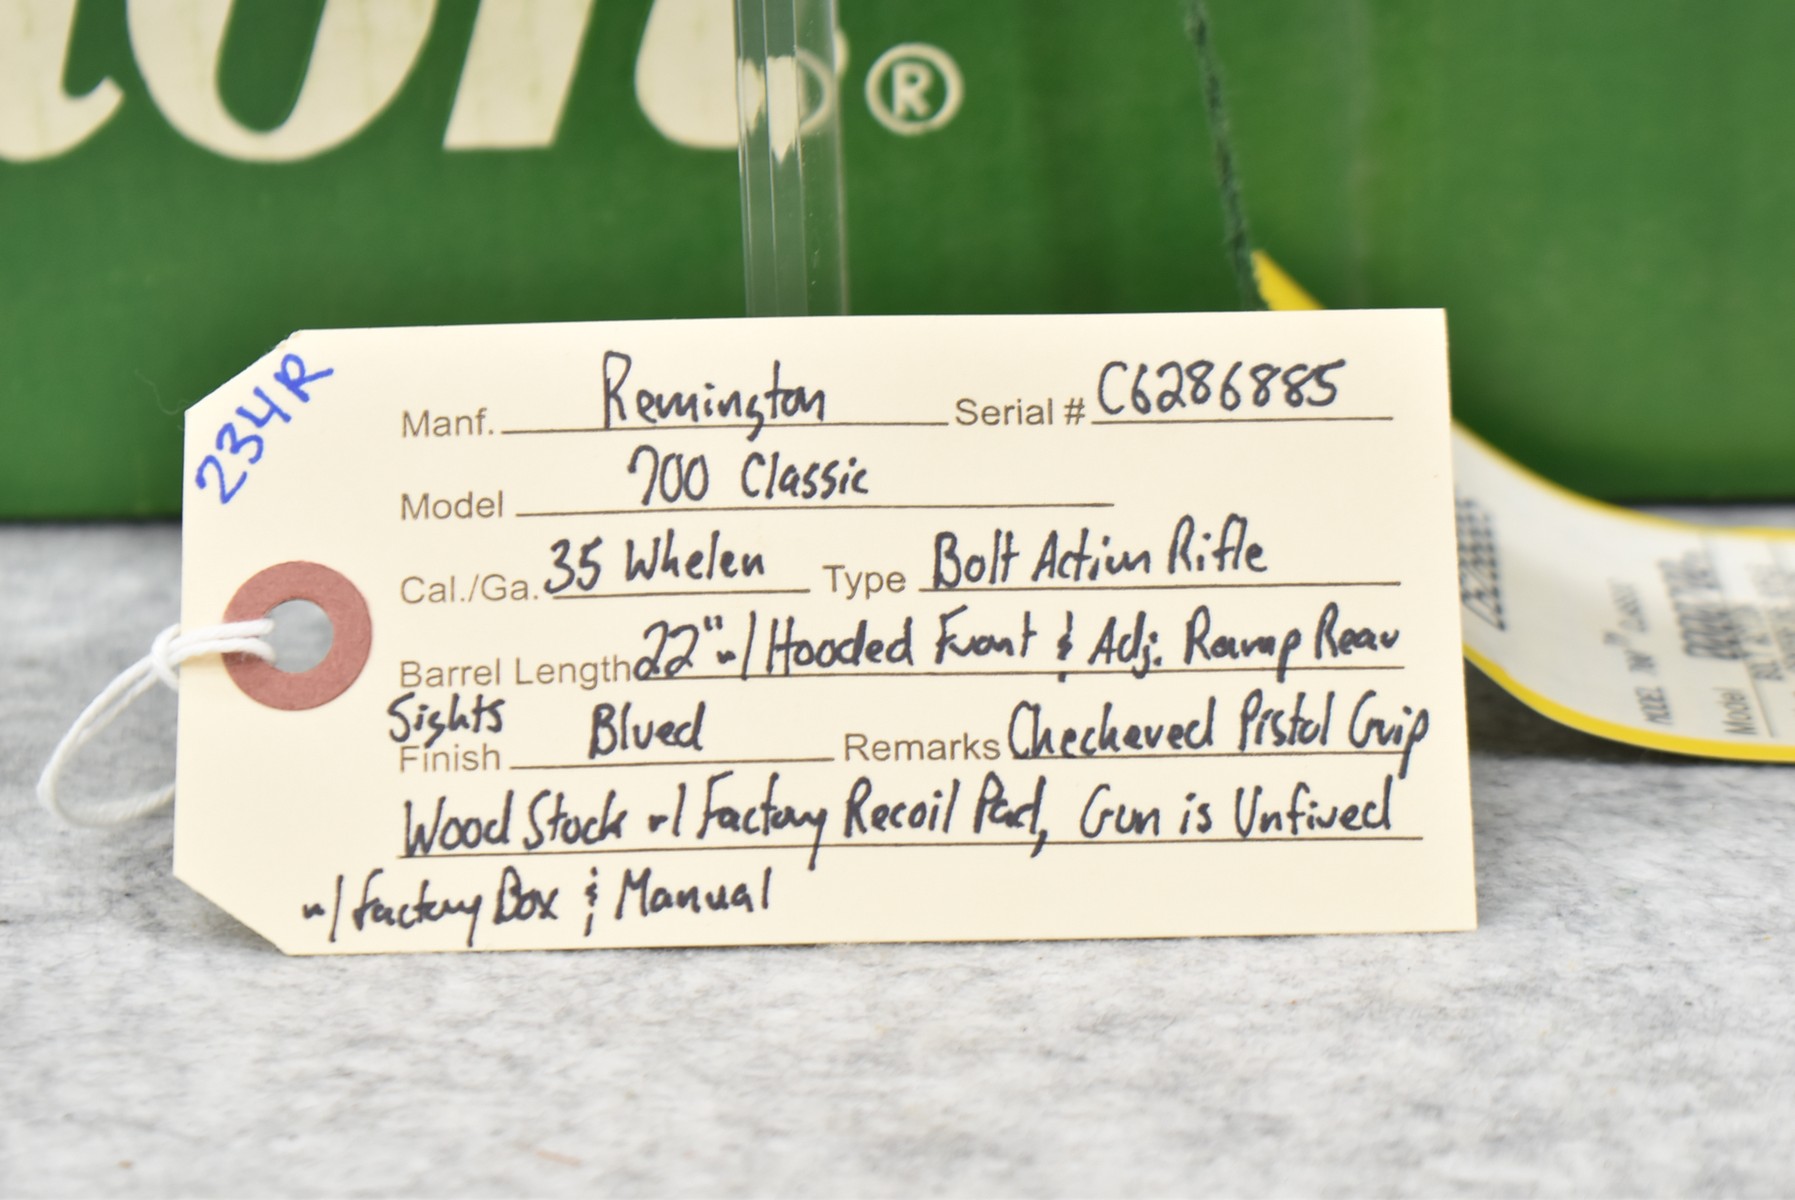 ®
234R
Manf. Remington Serial # C6286885
Model 700 Classic
Cal./Ga. 35 Whelen Type Bolt Action Rifle
Barrel Length 22" w/ Hooded Front & Adj. Ramp Rear
Sights
Finish Blued Remarks Checkered Pistol Grip
Wood Stock w/ Factory Recoil Pad, Gun is Unfired
w/ Factory Box & Manual
Model